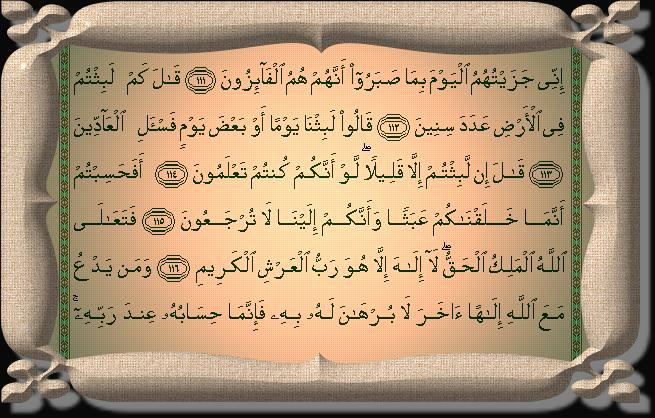 إِنِّى جَزَيْتُهُمُ ٱلْيَوْمَ بِمَا صَبَرُوٓا۟ أَنَّهُمْ هُمُ ٱلْفَآئِزُونَ ١١١ قَـٰلَ كَمْ لَبِثْتُمْ
فِى ٱلْأَرْضِ عَدَدَ سِنِينَ ١١٢ قَالُوا۟ لَبِثْنَا يَوْمًا أَوْ بَعْضَ يَوْمٍ فَسْـَٔلِ ٱلْعَآدِّينَ
١١٣ قَـٰلَ إِن لَّبِثْتُمْ إِلَّا قَلِيلًا ۖ لَّوْ أَنَّكُمْ كُنتُمْ تَعْلَمُونَ ١١٤ أَفَحَسِبْتُمْ
أَنَّمَا خَلَقْنَـٰكُمْ عَبَثًا وَأَنَّكُمْ إِلَيْنَا لَا تُرْجَعُونَ ١١٥ فَتَعَـٰلَى
ٱللَّهُ ٱلْمَلِكُ ٱلْحَقُّ ۖ لَآ إِلَـٰهَ إِلَّا هُوَ رَبُّ ٱلْعَرْشِ ٱلْكَرِيمِ ١١٦ وَمَن يَدْعُ
مَعَ ٱللَّهِ إِلَـٰهًا ءَاخَرَ لَا بُرْهَـٰنَ لَهُۥ بِهِۦ فَإِنَّمَا حِسَابُهُۥ عِندَ رَبِّهِۦٓ ۚ